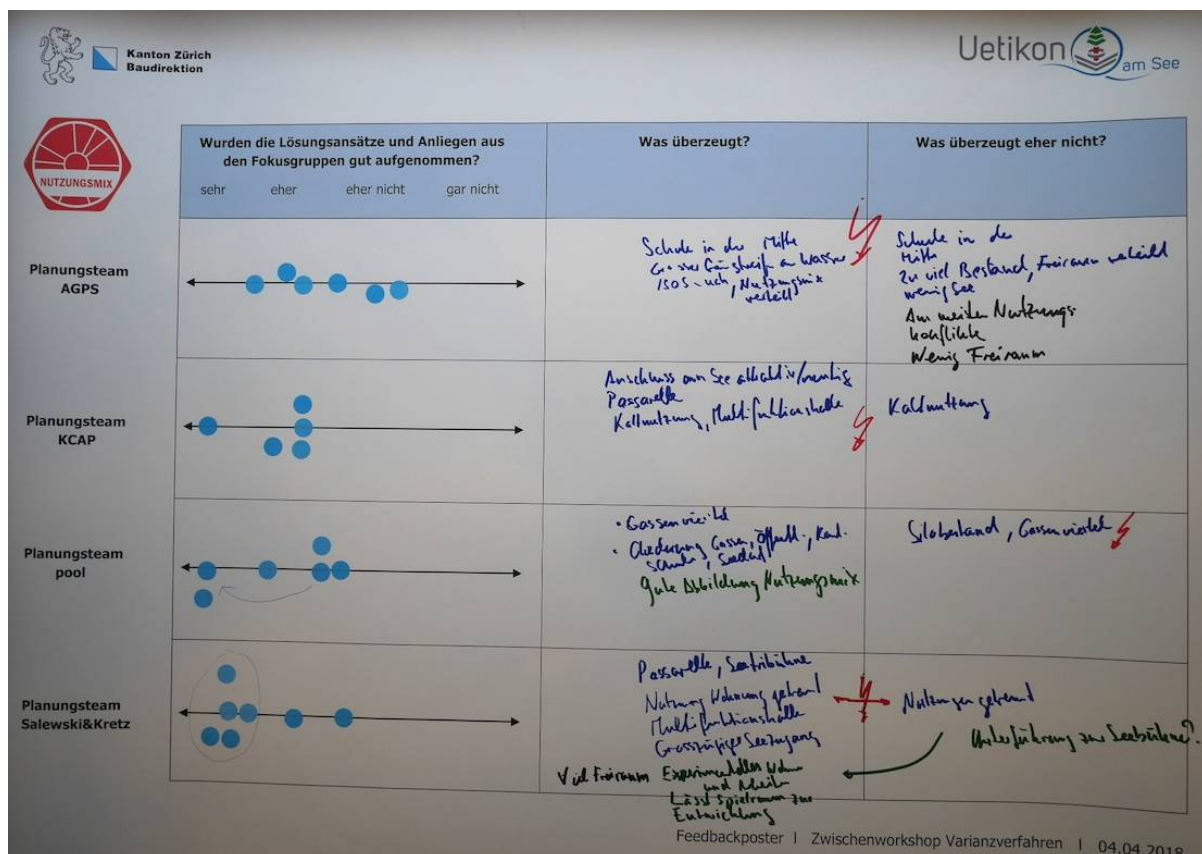 Kanton Zürich
Baudirektion
Uetikon
am See
NUTZUNGSMIX
Wurden die Lösungsansätze und Anliegen aus
den Fokusgruppen gut aufgenommen?
sehr eher eher nicht gar nicht
Was überzeugt?
Was überzeugt eher nicht?
Planungsteam
AGPS
Schule in der Mitte
Grosser am Wasser
ISOS Nutzungsmix
verteilt
Schule in der
Mitte
Zu viel Bestand, Freiraum verteilt
wenig See
Am meisten Nutzungs-
konflikte
Wenig Freiraum
Planungsteam
KCAP
Anschluss am See attraktiv/
Passarelle
Kaltnutzung, Multifunktionshalle
Kaltnutzung
Planungsteam
pool
• Gassenviertel
• Gliederung Gassen, öffentl., Kant.
schule,
gute Abbildung Nutzungsmix
Silobestand, Gassenviertel
Planungsteam
Salewski&Kretz
Passarelle, Seetribühne
Nutzung Wohnung getrennt
Multifunktionshalle
Grosszügiger Seezugang
Viel Freiraum Experimentelles Wohnen
und Arbeiten
Lässt Spielraum zur
Entwicklung
Nutzungen getrennt
Unterführung zur Seebühne?
Feedbackposter I Zwischenworkshop Varianzverfahren I 04.04.2018